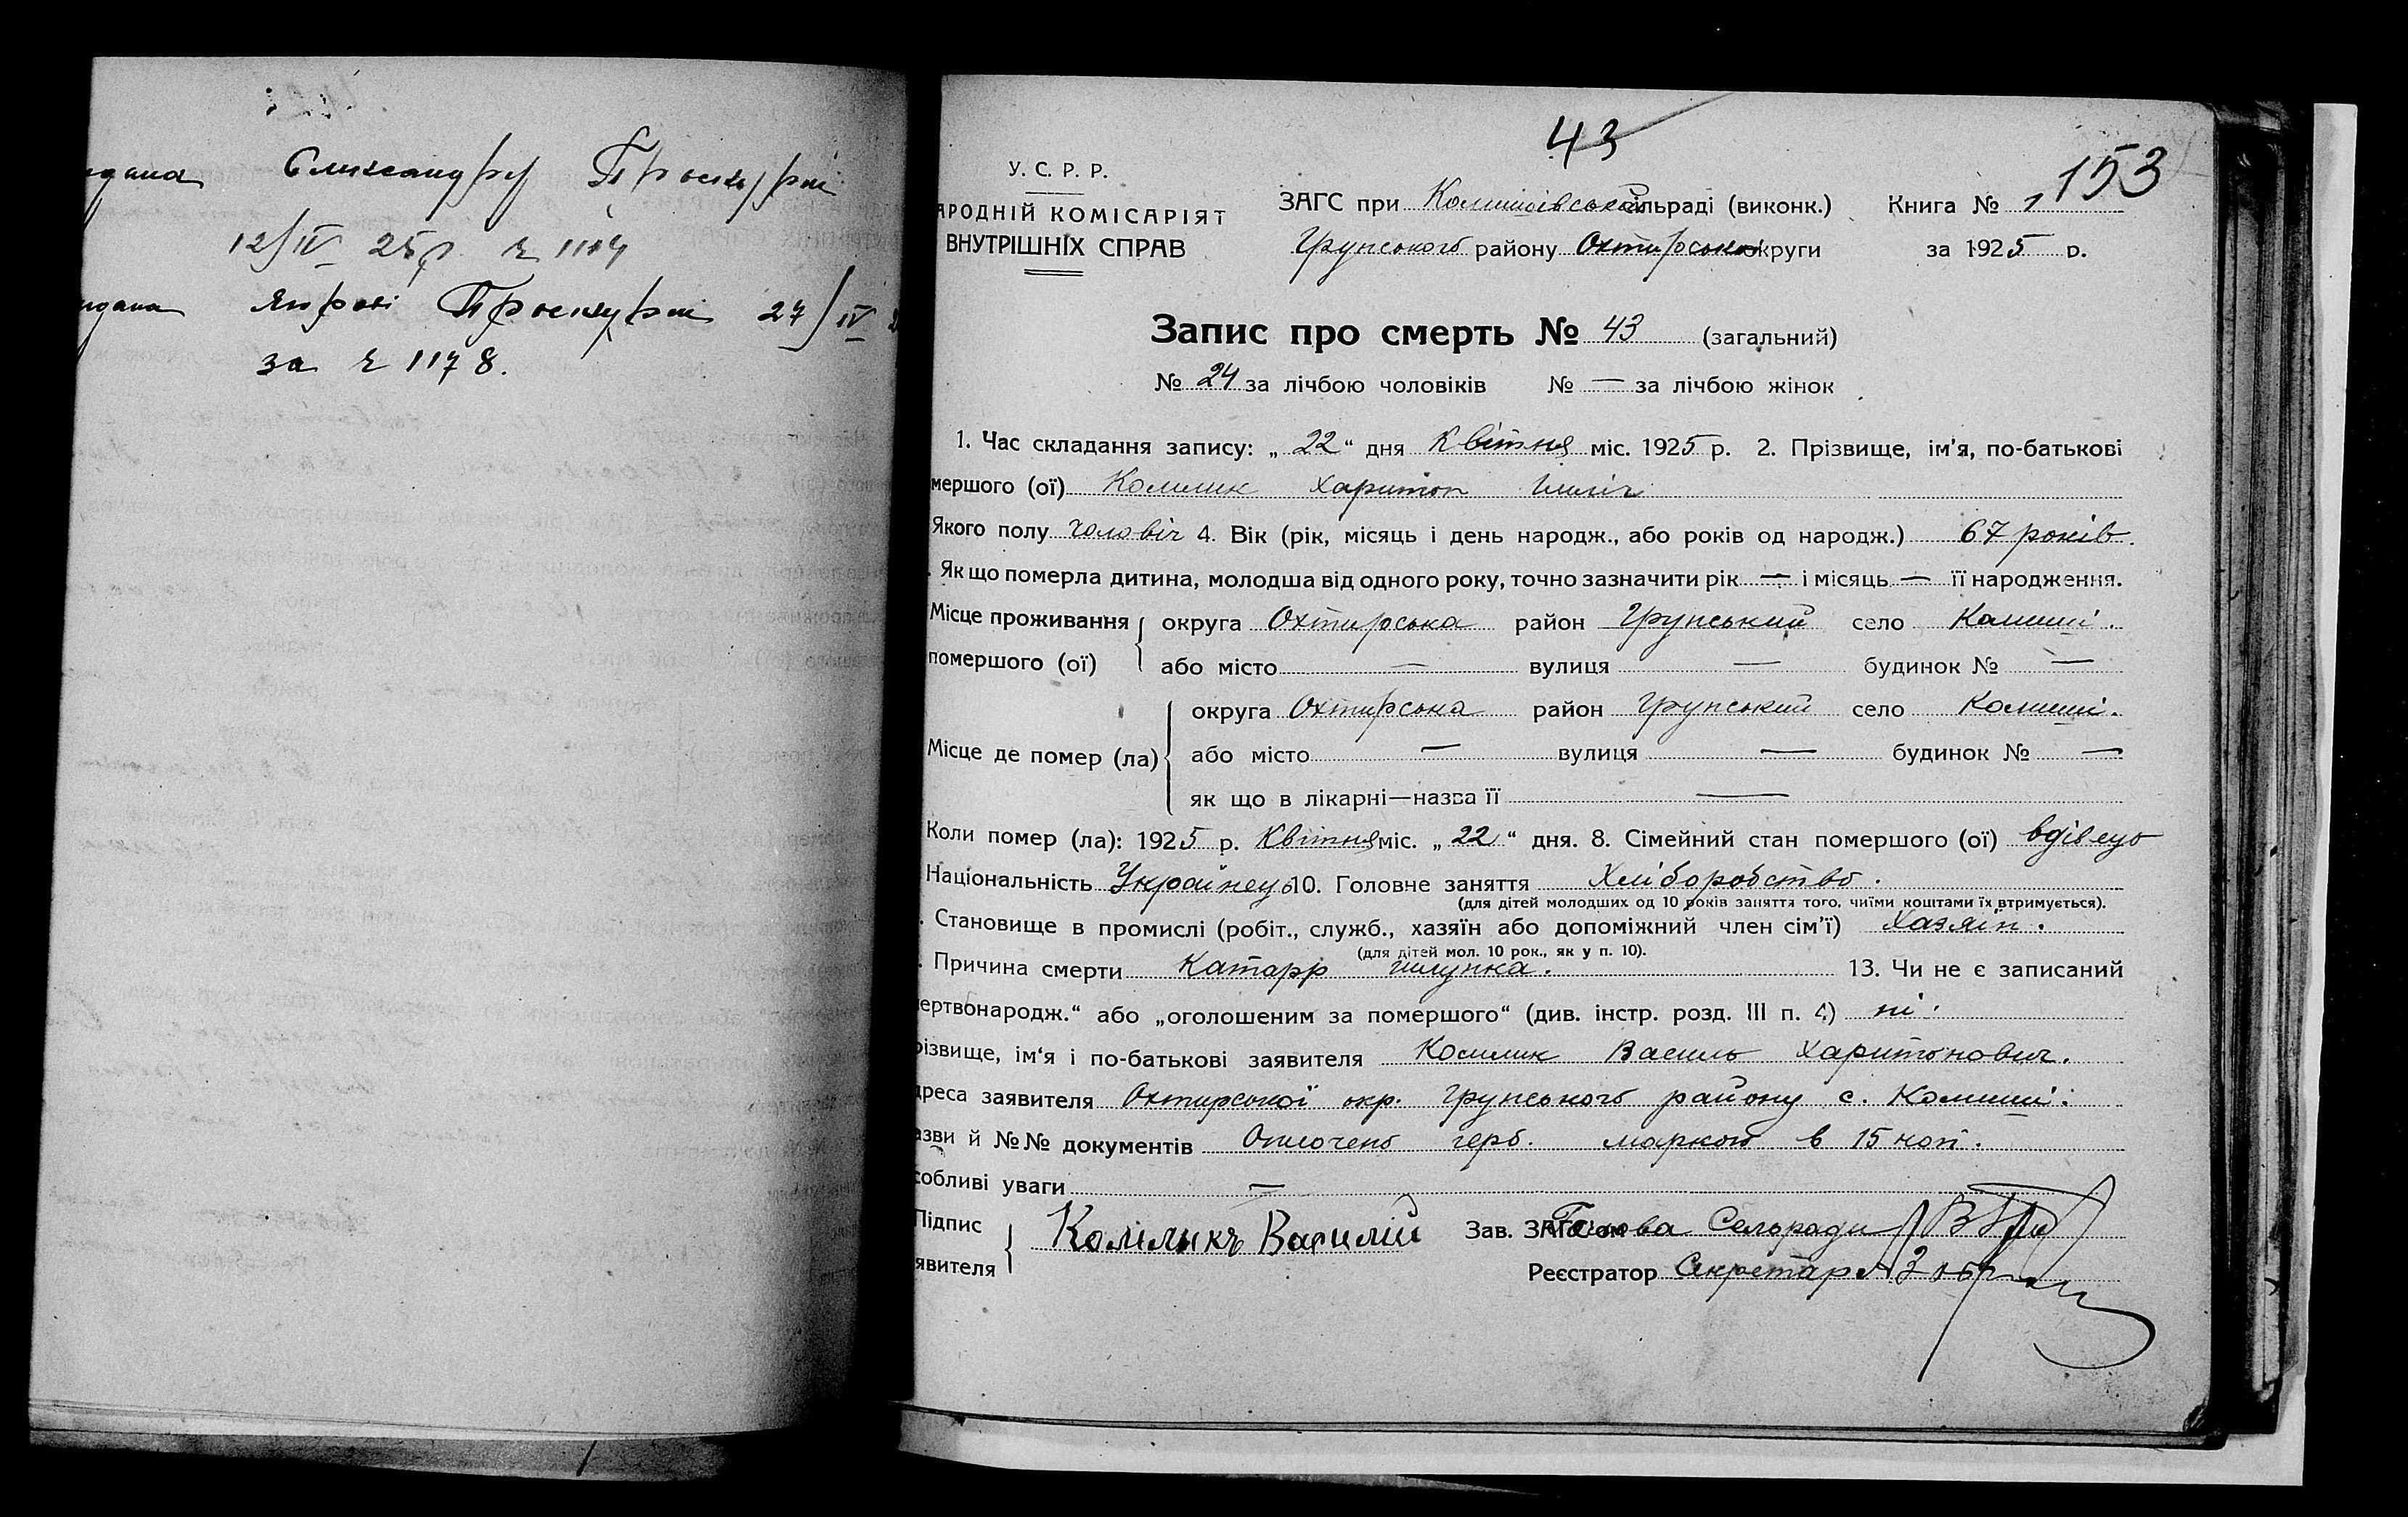 идана Олександру Проскурні
12/IV 25р. ч 1104
идана Явросі Проскурні 27/IV
за ч 1178.
43
153
У. С. Р. Р.
АРОДНІЙ КОМІСАРІЯТ
ВНУТРІШНІХ СПРАВ
ЗАГС при Комишівській сільраді (виконк.)
Грунського району Охтирської округи
Книга № 1
за 1925 р.
Запис про смерть № 43 (загальний)
№ 24 за лічбою чоловіків № — за лічбою жінок
1. Час складання запису: „ 22 “ дня Квітня міс. 1925 р. 2. Прізвище, ім'я, по-батькові
мершого (ої) Комлик Харитон Ілліч
Якого полу чоловіч 4. Вік (рік, місяць і день народж., або років од народж.) 67 років.
. Як що померла дитина, молодша від одного року, точно зазначити рік — і місяць — її народження.
Місце проживання помершого (ої)
округа Охтирська район Грунський село Комиші.
або місто — вулиця — будинок № —
Місце де помер (ла)
округа Охтирська район Грунський село Комиші.
або місто — вулиця — будинок № —
як що в лікарні—назва її —
Коли помер (ла): 1925 р. Квітня міс. „ 22 “ дня. 8. Сімейний стан помершого (ої) вдівець
Національність Українець 10. Головне заняття Хліборобство.
(для дітей молодших од 10 років заняття того, чиїми коштами їх втримується).
. Становище в промислі (робіт., служб., хазяїн або допоміжний член сім'ї) Хазяїн.
(для дітей мол. 10 рок., як у п. 10).
. Причина смерти Катарр шлунка. 13. Чи не є записаний
ертвонародж.“ або „оголошеним за помершого“ (див. інстр. розд. III п. 4) ні.
різвище, ім'я і по-батькові заявителя Комлик Василь Харитонович.
дреса заявителя Охтирської окр. Грунського району с. Комиші.
азви й №№ документів Оплочено герб. маркою в 15 коп.
собливі уваги —
Підпис
явителя
Комлыкъ Василий
Зав. ЗАГС'ом Голова Сельради
Реєстратор Секретар